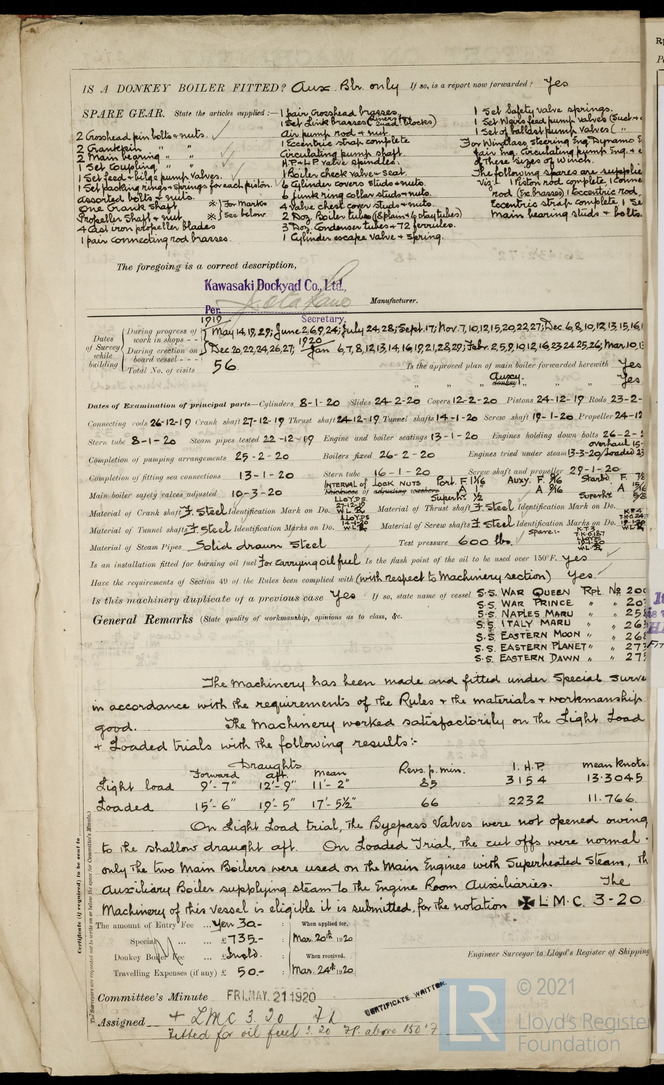 IS A DONKEY BOILER FITTED? Aux. Blr. only If so, is a report now forwarded? Yes
SPARE GEAR. State the articles supplied:—
2 Crosshead pin bolts & nuts.
2 Crankpin " "
2 Main bearing " "
1 Set Coupling " "
1 Set feed & bilge pump valves.
1 Set packing rings & springs for each piston
assorted bolts & nuts.
One Crank shaft ※ } For Marks
Propeller Shaft & nut ※ } See below
4 Cast iron propeller blades
1 pair connecting rod brasses.
1 pair Crosshead brasses
1 Set Link brasses ( blocks)
Air pump rod & nut
1 Eccentric strap complete
Circulating pump shaft.
1 H.P. & I.P. valve spindles
1 Boiler check valve & seat.
6 Cylinder covers studs & nuts.
6 Junk ring collar studs & nuts.
4 Valve chest cover studs & nuts.
2 Doz. Boiler tubes (18 plain & 6 stay tubes)
3 Doz. Condenser tubes & 72 ferrules.
1 Cylinder escape valve & spring.
1 Set Safety valve springs.
1 Set Weirs feed pump valves (Suct &
1 Set of ballast pump valves ( "
For Windlass, steering Eng. Dynamo E
Circulating pump Eng. &
of three sizes of winch.
The following spares are supplie
Viz. 1 Piston rod complete 1 Conne
rod (no brasses) Eccentric rod,
Eccentric strap complete 1 Se
main bearing studs & bolts
The foregoing is a correct description,
Kawasaki Dockyad Co., Ltd.,
Per. Manufacturer.
Secretary.
Dates of Survey while building
1919
During progress of work in shops - - May 14, 19, 29; June 2, 6, 9, 24; July 24, 28; Sept. 17; Nov. 7, 10, 12, 15, 20, 22, 27; Dec. 6, 8, 10, 12, 13, 15, 16, 1
1920
During erection on board vessel - - - Dec 20, 22, 24, 26, 27, Jan 6, 7, 8, 12, 13, 14, 16, 19, 21, 28, 29; Febr. 2, 5, 9, 10, 12, 16, 23, 24, 25, 26; Mar. 10, 1
Total No. of visits 56. Is the approved plan of main boiler forwarded herewith Yes
" " " Auxy. donkey " " " Yes
Dates of Examination of principal parts—Cylinders 8-1-20 Slides 24-2-20 Covers 12-2-20 Pistons 24-12-19 Rods 23-2-
Connecting rods 26-12-19 Crank shaft 27-12-19 Thrust shaft 24-12-19 Tunnel shafts 14-1-20 Screw shaft 19-1-20 Propeller 24-12
Stern tube 8-1-20 Steam pipes tested 22-12-19 Engine and boiler seatings 13-1-20 Engines holding down bolts 26-2-
overhaul 15-
Completion of pumping arrangements 25-2-20 Boilers fixed 26-2-20 Engines tried under steam 13-3-20/Loaded 2
Completion of fitting sea connections 13-1-20 Stern tube 16-1-20 Screw shaft and propeller 29-1-20
Main boiler safety valves adjusted 10-3-20 INTERVAL OF LOCK NUTS Port. F. 1 1/16 Auxy. F. 9/16 Starbd. F. 7/8
A 1" A 9/16 A
Superhr. 1/2 Superhr.
Material of Crank shaft F. Steel Identification Mark on Do. LLOYD'S W.L. Material of Thrust shaft F. Steel Identification Mark on Do.
Material of Tunnel shafts F. Steel Identification Marks on Do. LLOYD'S W.L. Material of Screw shafts F. Steel Identification Marks on Do.
Spare:-
Material of Steam Pipes Solid drawn Steel Test pressure 600 lbs.
Is an installation fitted for burning oil fuel For carrying oil fuel Is the flash point of the oil to be used over 150°F. yes
Have the requirements of Section 49 of the Rules been complied with (with respect to Machinery section) Yes.
Is this machinery duplicate of a previous case Yes If so, state name of vessel S.S. WAR QUEEN Rpt. No 20
S.S. WAR PRINCE " " 20
S.S. NAPLES MARU " " 25
S.S. ITALY MARU " " 26
S.S. EASTERN MOON " " 26
S.S. EASTERN PLANET " " 27
S.S. EASTERN DAWN " " 27
General Remarks (State quality of workmanship, opinions as to class, &c.
The Machinery has been made and fitted under Special Surve
in accordance with the requirements of the Rules & the materials & workmanship
good. The Machinery worked satisfactorily on the Light Load
& Loaded trials with the following results:-
Draughts
Forward aft. Mean Revs. p. min. I.H.P. mean Knots.
Light load 9'-7" 12'-9" 11'-2" 85 3154 13.3045
Loaded 15'-6" 19'-5" 17'-5½" 66 2232 11.766
On Light Load trial, the Byepass Valves were not opened owing
to the shallow draught aft. On Loaded Trial, the cut offs were normal.
only the two Main Boilers were used on the Main Engines with Superheated Steam, th
Auxiliary Boiler supplying steam to the Engine Room Auxiliaries. The
Machinery of this vessel is eligible it is submitted, for the notation ✠ L.M.C. 3-20.
Certificate (if required) to be sent to
The amount of Entry Fee ... Yen 30.- When applied for,
Special ... £ 735.- Mar. 20th 1920
Donkey Boiler Fee ... £ Incld. When received,
Travelling Expenses (if any) £ 50.- Mar. 24th 1920
Engineer Surveyor to Lloyd's Register of Shipping
Committee's Minute FRI. MAY. 21 1920
CERTIFICATE WRITTEN
Assigned + LMC 3.20
Fitted for oil fuel 3.20 F.P. above 150°F
LR
© 2021
Lloyd's Register
Foundation